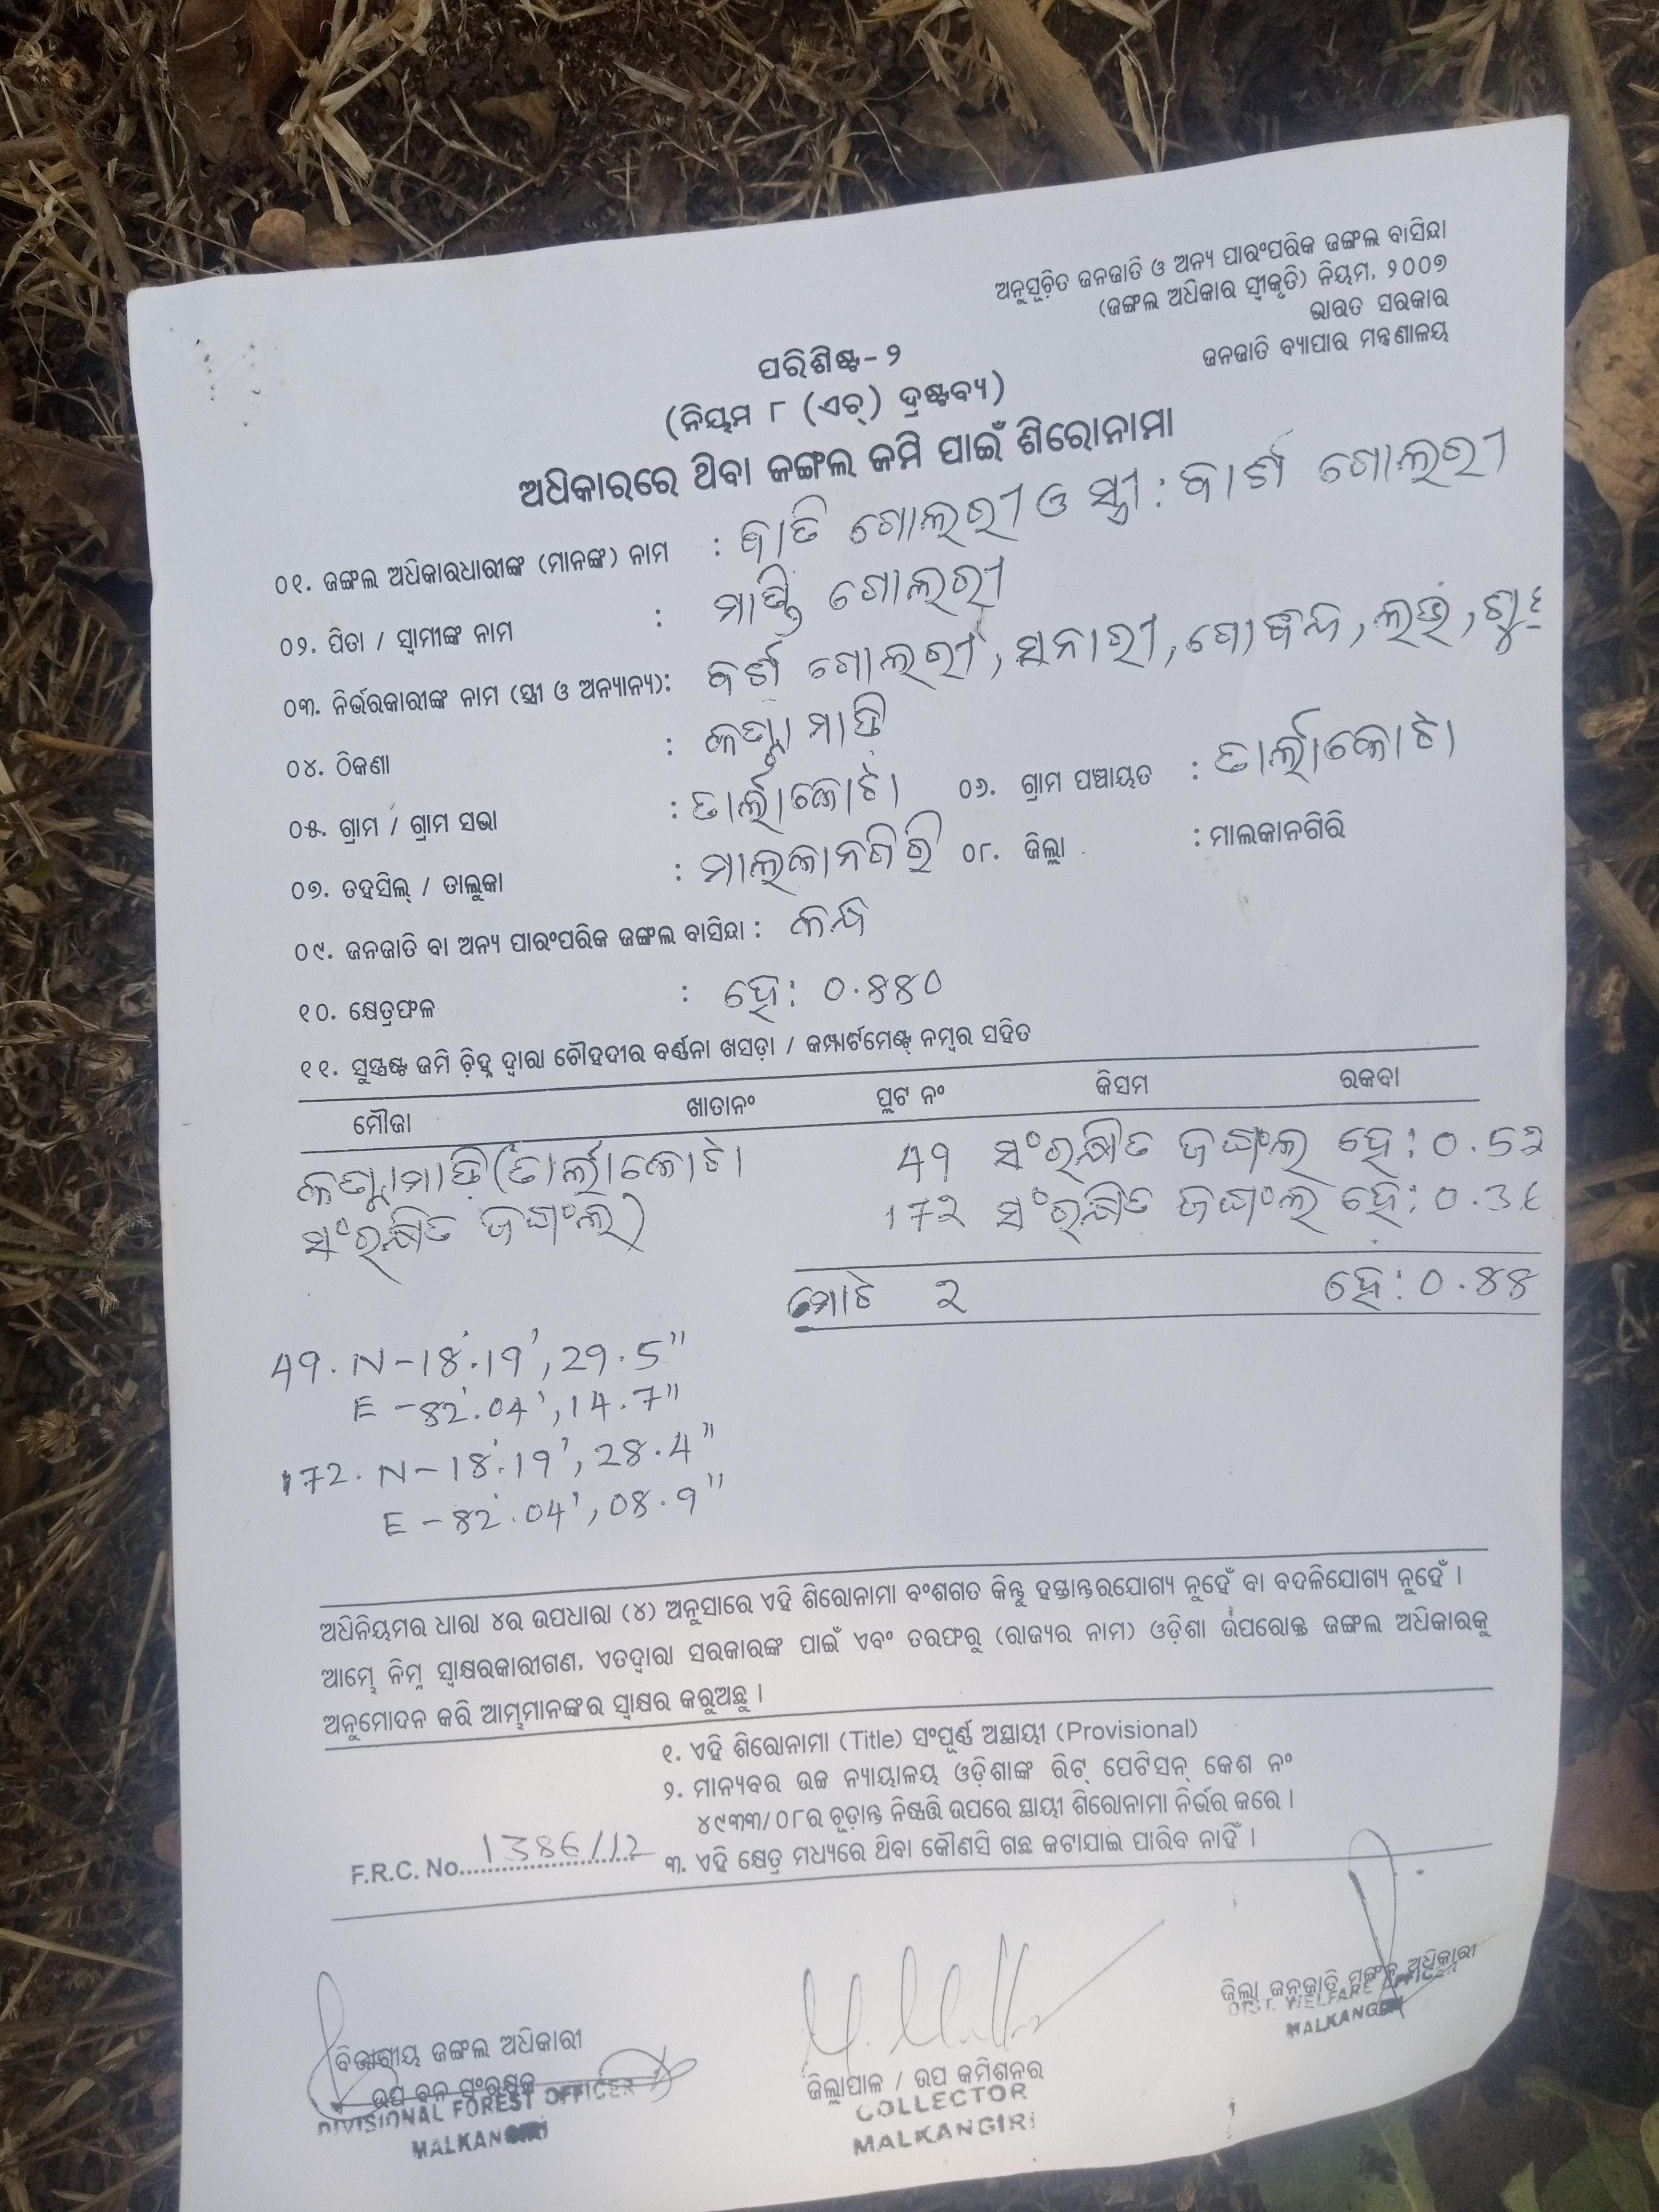 ଅନୁସୂଚିତ ଜନଜାତି ଓ ଅନ୍ୟ ପାରଂପରିକ ଜଙ୍ଗଲ ବାସିନ୍ଦା
(ଜଙ୍ଗଲ ଅଧିକାର ସ୍ୱୀକୃତି) ନିୟମ, ୨୦୦୭
ଭାରତ ସରକାର
ଜନଜାତି ବ୍ୟାପାର ମନ୍ତ୍ରଣାଳୟ
ପରିଶିଷ୍ଟ-୨
(ନିୟମ ୮ (ଏଚ୍) ଦ୍ରଷ୍ଟବ୍ୟ)
ଅଧିକାରରେ ଥିବା ଜଙ୍ଗଲ ଜମି ପାଇଁ ଶିରୋନାମା
୦୧. ଜଙ୍ଗଲ ଅଧିକାରଧାରୀଙ୍କ (ମାନଙ୍କ) ନାମ : ଗୋଲରୀ ଓ ସ୍ତ୍ରୀ : ଗୋଲରୀ
୦୨. ପିତା / ସ୍ୱାମୀଙ୍କ ନାମ : ଗୋଲରୀ
୦୩. ନିର୍ଭରକାରୀଙ୍କ ନାମ (ସ୍ତ୍ରୀ ଓ ଅନ୍ୟାନ୍ୟ): ଗୋଲରୀ, ସନାରୀ,
୦୪. ଠିକଣା :
୦୫. ଗ୍ରାମ / ଗ୍ରାମ ସଭା : ତାର୍ଲାକୋଟା ୦୬. ଗ୍ରାମ ପଞ୍ଚାୟତ : ତାର୍ଲାକୋଟା
୦୭. ତହସିଲ୍ / ତାଲୁକା : ମାଲକାନଗିରି ୦୮. ଜିଲ୍ଲା : ମାଲକାନଗିରି
୦୯. ଜନଜାତି ବା ଅନ୍ୟ ପାରଂପରିକ ଜଙ୍ଗଲ ବାସିନ୍ଦା : କନ୍ଧ
୧୦. କ୍ଷେତ୍ରଫଳ : ହେ: 0.880
୧୧. ସୁସ୍ପଷ୍ଟ ଜମି ଚିହ୍ନ ଦ୍ୱାରା ଚୌହଦୀର ବର୍ଣ୍ଣନା ଖସଡ଼ା / କମ୍ପାର୍ଟମେଣ୍ଟ୍ ନମ୍ବର ସହିତ
ମୌଜା ଖାତାନଂ ପ୍ଲଟ ନଂ କିସମ ରକବା
(ତାର୍ଲାକୋଟା 49 ସଂରକ୍ଷିତ ଜଙ୍ଗଲ ହେ: 0.52
ସଂରକ୍ଷିତ ଜଙ୍ଗଲ) 172 ସଂରକ୍ଷିତ ଜଙ୍ଗଲ ହେ: 0.36
ମୋଟ 2 ହେ: 0.88
49. N-18°.19', 29.5"
E-82°.04', 14.7"
172. N-18°.19', 28.4"
E-82°.04', 08.9"
ଅଧିନିୟମର ଧାରା ୪ର ଉପଧାରା (୪) ଅନୁସାରେ ଏହି ଶିରୋନାମା ବଂଶଗତ କିନ୍ତୁ ହସ୍ତାନ୍ତରଯୋଗ୍ୟ ନୁହେଁ ବା ବଦଳିଯୋଗ୍ୟ ନୁହେଁ ।
ଆମ୍ଭେ ନିମ୍ନ ସ୍ୱାକ୍ଷରକାରୀଗଣ, ଏତଦ୍ୱାରା ସରକାରଙ୍କ ପାଇଁ ଏବଂ ତରଫରୁ (ରାଜ୍ୟର ନାମ) ଓଡ଼ିଶା ଉପରୋକ୍ତ ଜଙ୍ଗଲ ଅଧିକାରକୁ
ଅନୁମୋଦନ କରି ଆମ୍ଭମାନଙ୍କର ସ୍ୱାକ୍ଷର କରୁଅଛୁ ।
୧. ଏହି ଶିରୋନାମା (Title) ସଂପୂର୍ଣ୍ଣ ଅସ୍ଥାୟୀ (Provisional)
୨. ମାନ୍ୟବର ଉଚ୍ଚ ନ୍ୟାୟାଳୟ ଓଡ଼ିଶାଙ୍କ ରିଟ୍ ପେଟିସନ୍ କେଶ ନଂ
୪୯୩୩/୦୮ର ଚୂଡ଼ାନ୍ତ ନିଷ୍ପତ୍ତି ଉପରେ ସ୍ଥାୟୀ ଶିରୋନାମା ନିର୍ଭର କରେ ।
F.R.C. No. 1386/12 ୩. ଏହି କ୍ଷେତ୍ର ମଧ୍ୟରେ ଥିବା କୌଣସି ଗଛ କଟାଯାଇ ପାରିବ ନାହିଁ ।
ଜିଲ୍ଲା ଜନଜାତି ମଙ୍ଗଳ ଅଧିକାରୀ
DIST. WELFARE OFFICER
MALKANGIRI
ବିଭାଗୀୟ ଜଙ୍ଗଲ ଅଧିକାରୀ
ଉପ ବନ ସଂରକ୍ଷକ
DIVISIONAL FOREST OFFICER
MALKANGIRI
ଜିଲ୍ଲାପାଳ / ଉପ କମିଶନର
COLLECTOR
MALKANGIRI